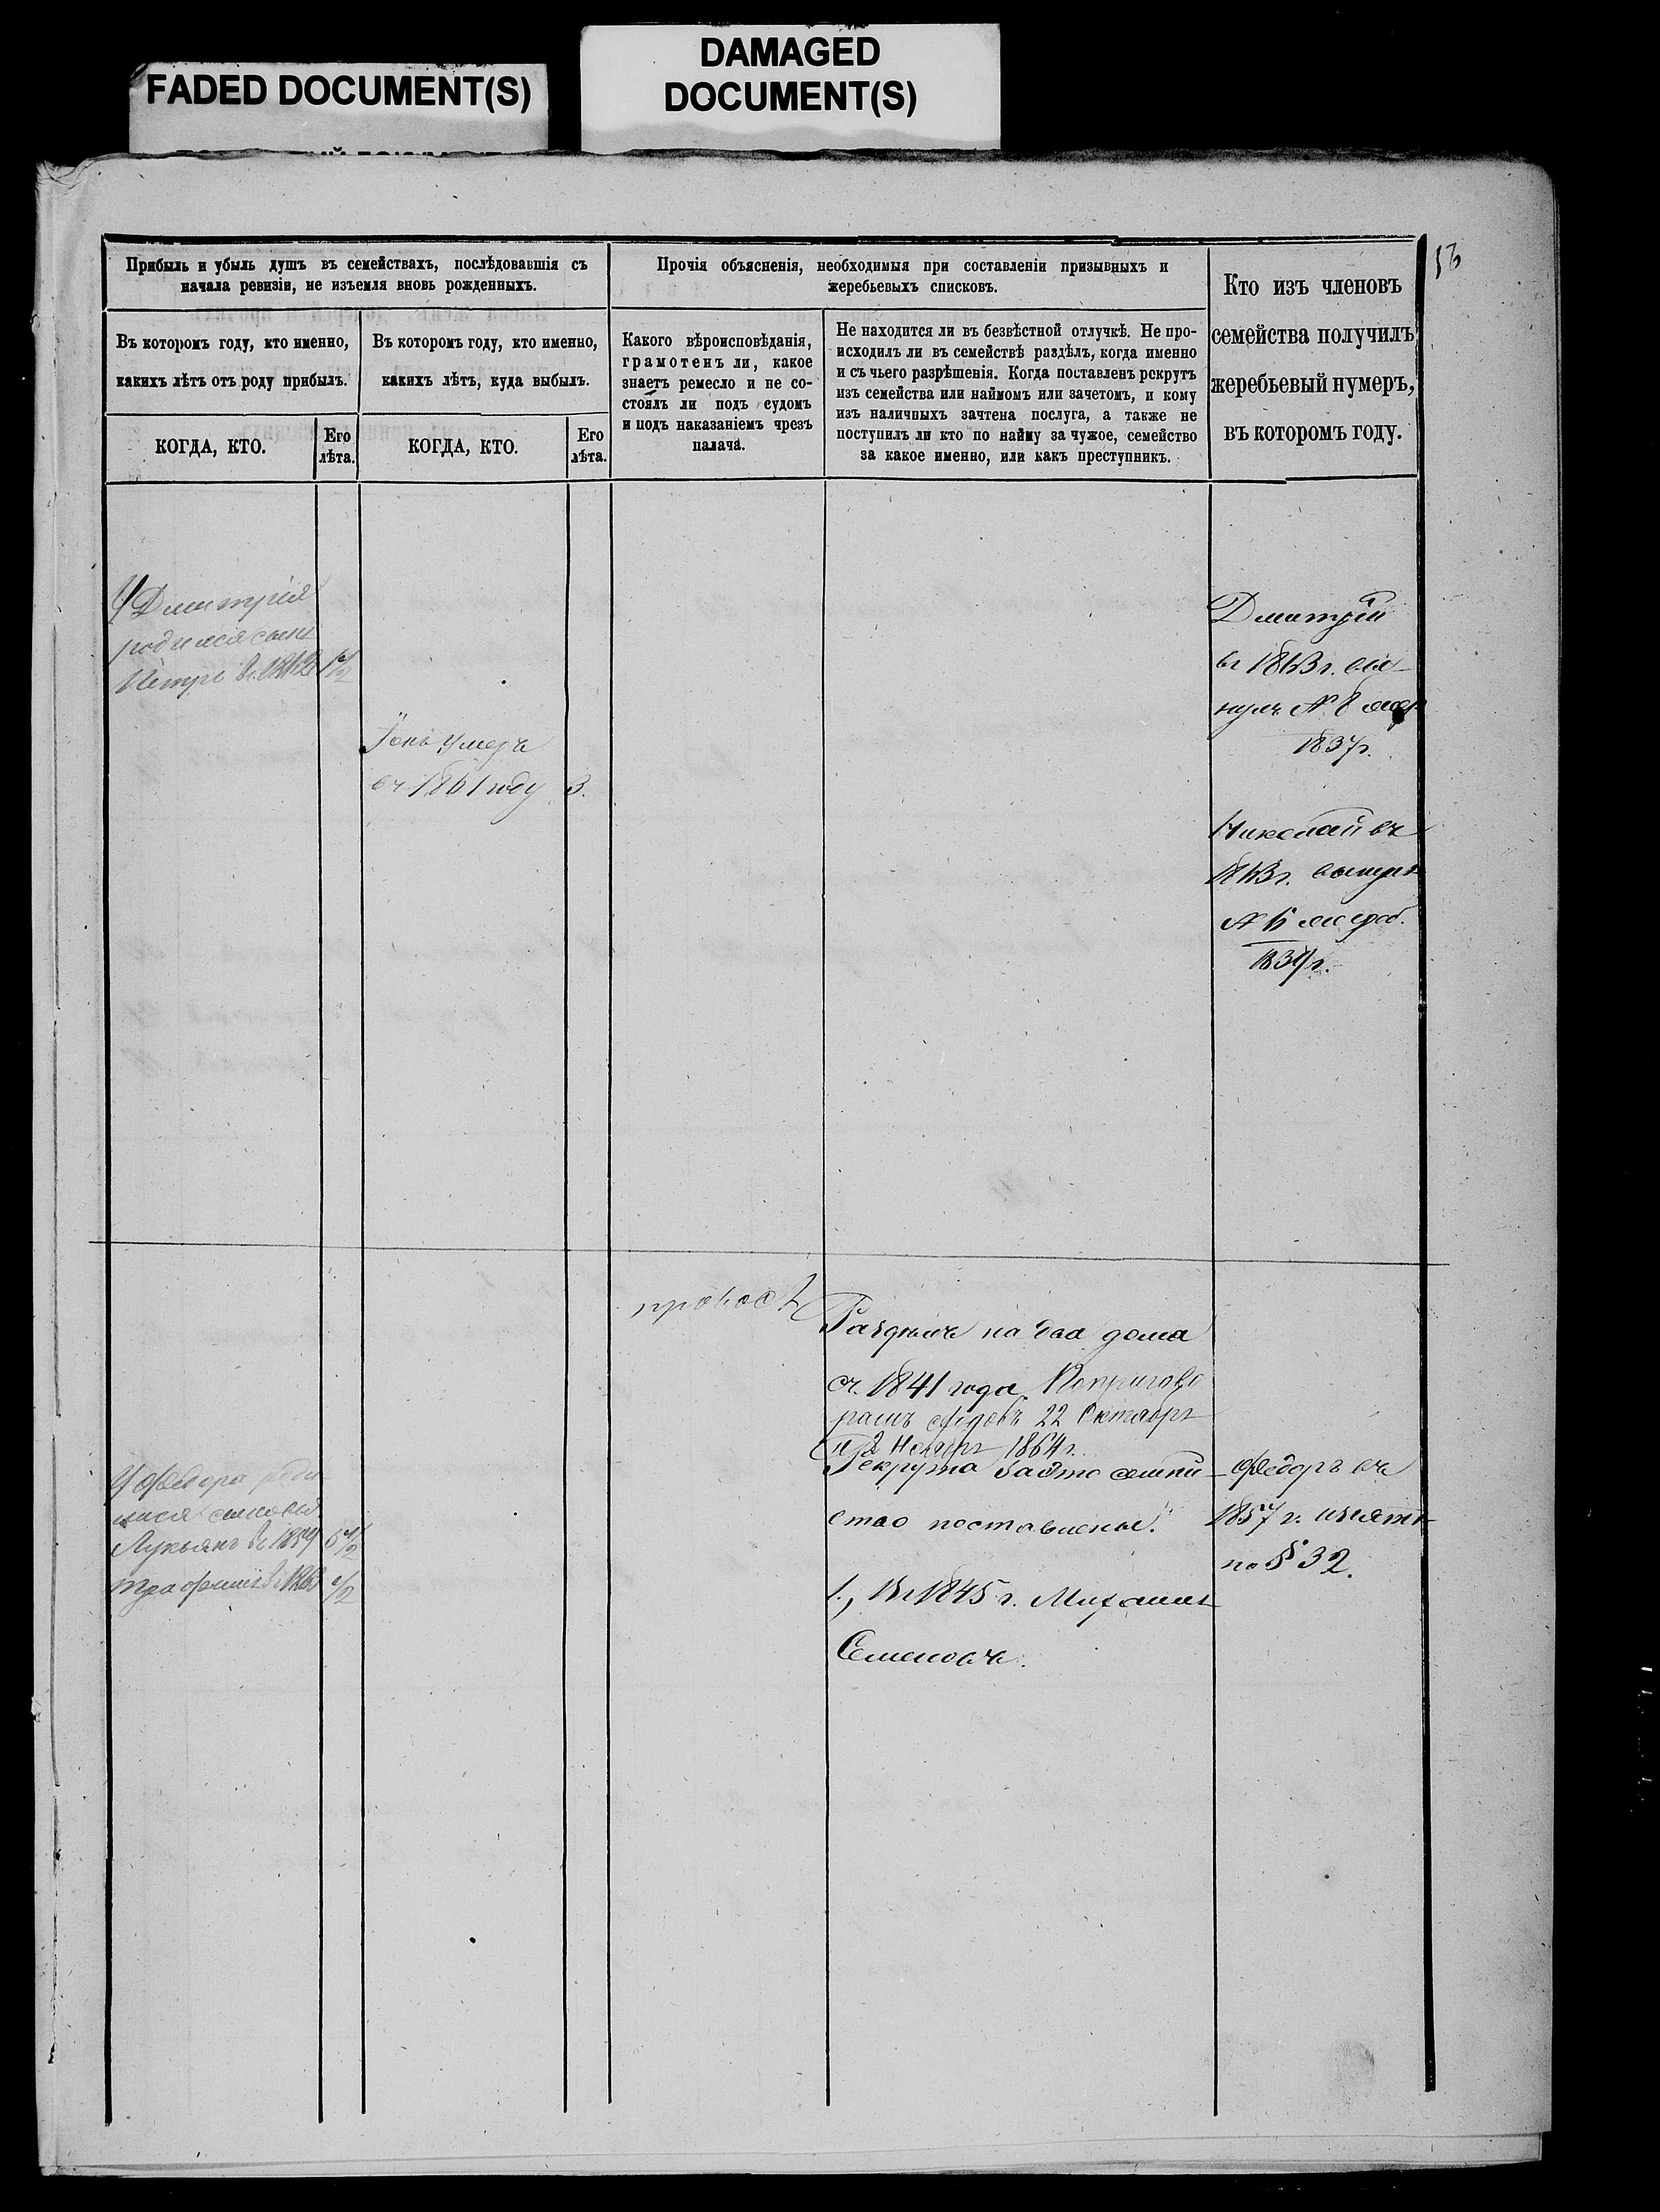 FADED DOCUMENT(S)
DAMAGED
DOCUMENT(S)
Прибыль и убыль душъ въ семействахъ, послѣдовавшія съ
начала ревизіи, не изъемля вновь рожденныхъ.
Въ которомъ году, кто именно,
какихъ лѣтъ отъ роду прибылъ.
КОГДА, КТО.
Его
лѣта.
Въ которомъ году, кто именно,
какихъ лѣтъ, куда выбылъ.
КОГДА, КТО.
Его
лѣта.
Прочія объясненія, необходимыя при составленіи призывныхъ и
жеребьевыхъ списковъ.
Какого вѣроисповѣданія,
грамотенъ ли, какое
знаетъ ремесло и не со-
стоялъ ли подъ судомъ
и подъ наказаніемъ чрезъ
палача.
Не находится ли въ безвѣстной отлучкѣ. Не про-
исходилъ ли въ семействѣ раздѣлъ, когда именно
и съ чьего разрѣшенія. Когда поставленъ рекрутъ
изъ семейства или наймомъ или зачетомъ, и кому
изъ наличныхъ зачтена послуга, а также не
поступилъ ли кто по найму за чужое, семейство
за какое именно, или какъ преступникъ.
Кто изъ членовъ
семейства получилъ
жеребьевый нумеръ,
въ которомъ году.
У Дмитрія
родился сынъ
Петръ
умеръ
въ 1861 году 3.
Дмитрій
въ 1863 г.
№ 8
1837 г.
Николай въ
1863 г.
№
1837 г.
Раздѣлъ на два дома
съ 1841 года По пригово
рамъ 22 Октября
и 2 Ноября 1864 г.
Рекрута
ство поставлены:
1., въ 1845 г. Михаилъ
Семеновъ.
У Федора роди
лися сыновья
Лукьянъ
Трофимъ
Федоръ въ
1857 г. изъятъ
по § 32.